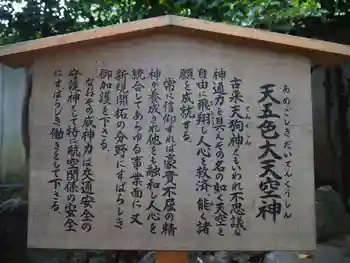 天五色大天空神
あめごしきだいてんくうしん
古来天狗神ともいわれ不思議な
てんぐ
神通力を具えその名の如く天空を
自由に飛翔し人心を救済、能く諸
願を成就する。
常に信仰すれば豪實不屈の精
神が養成され他をも融和し人心を
統合してあらゆる事業面に又
新規開拓の分野にすばらしき
御加護を下さる。
なおその威神力は交通安全の
守護神として特に航空関係の安全
にすばらしき働きをして下さる。